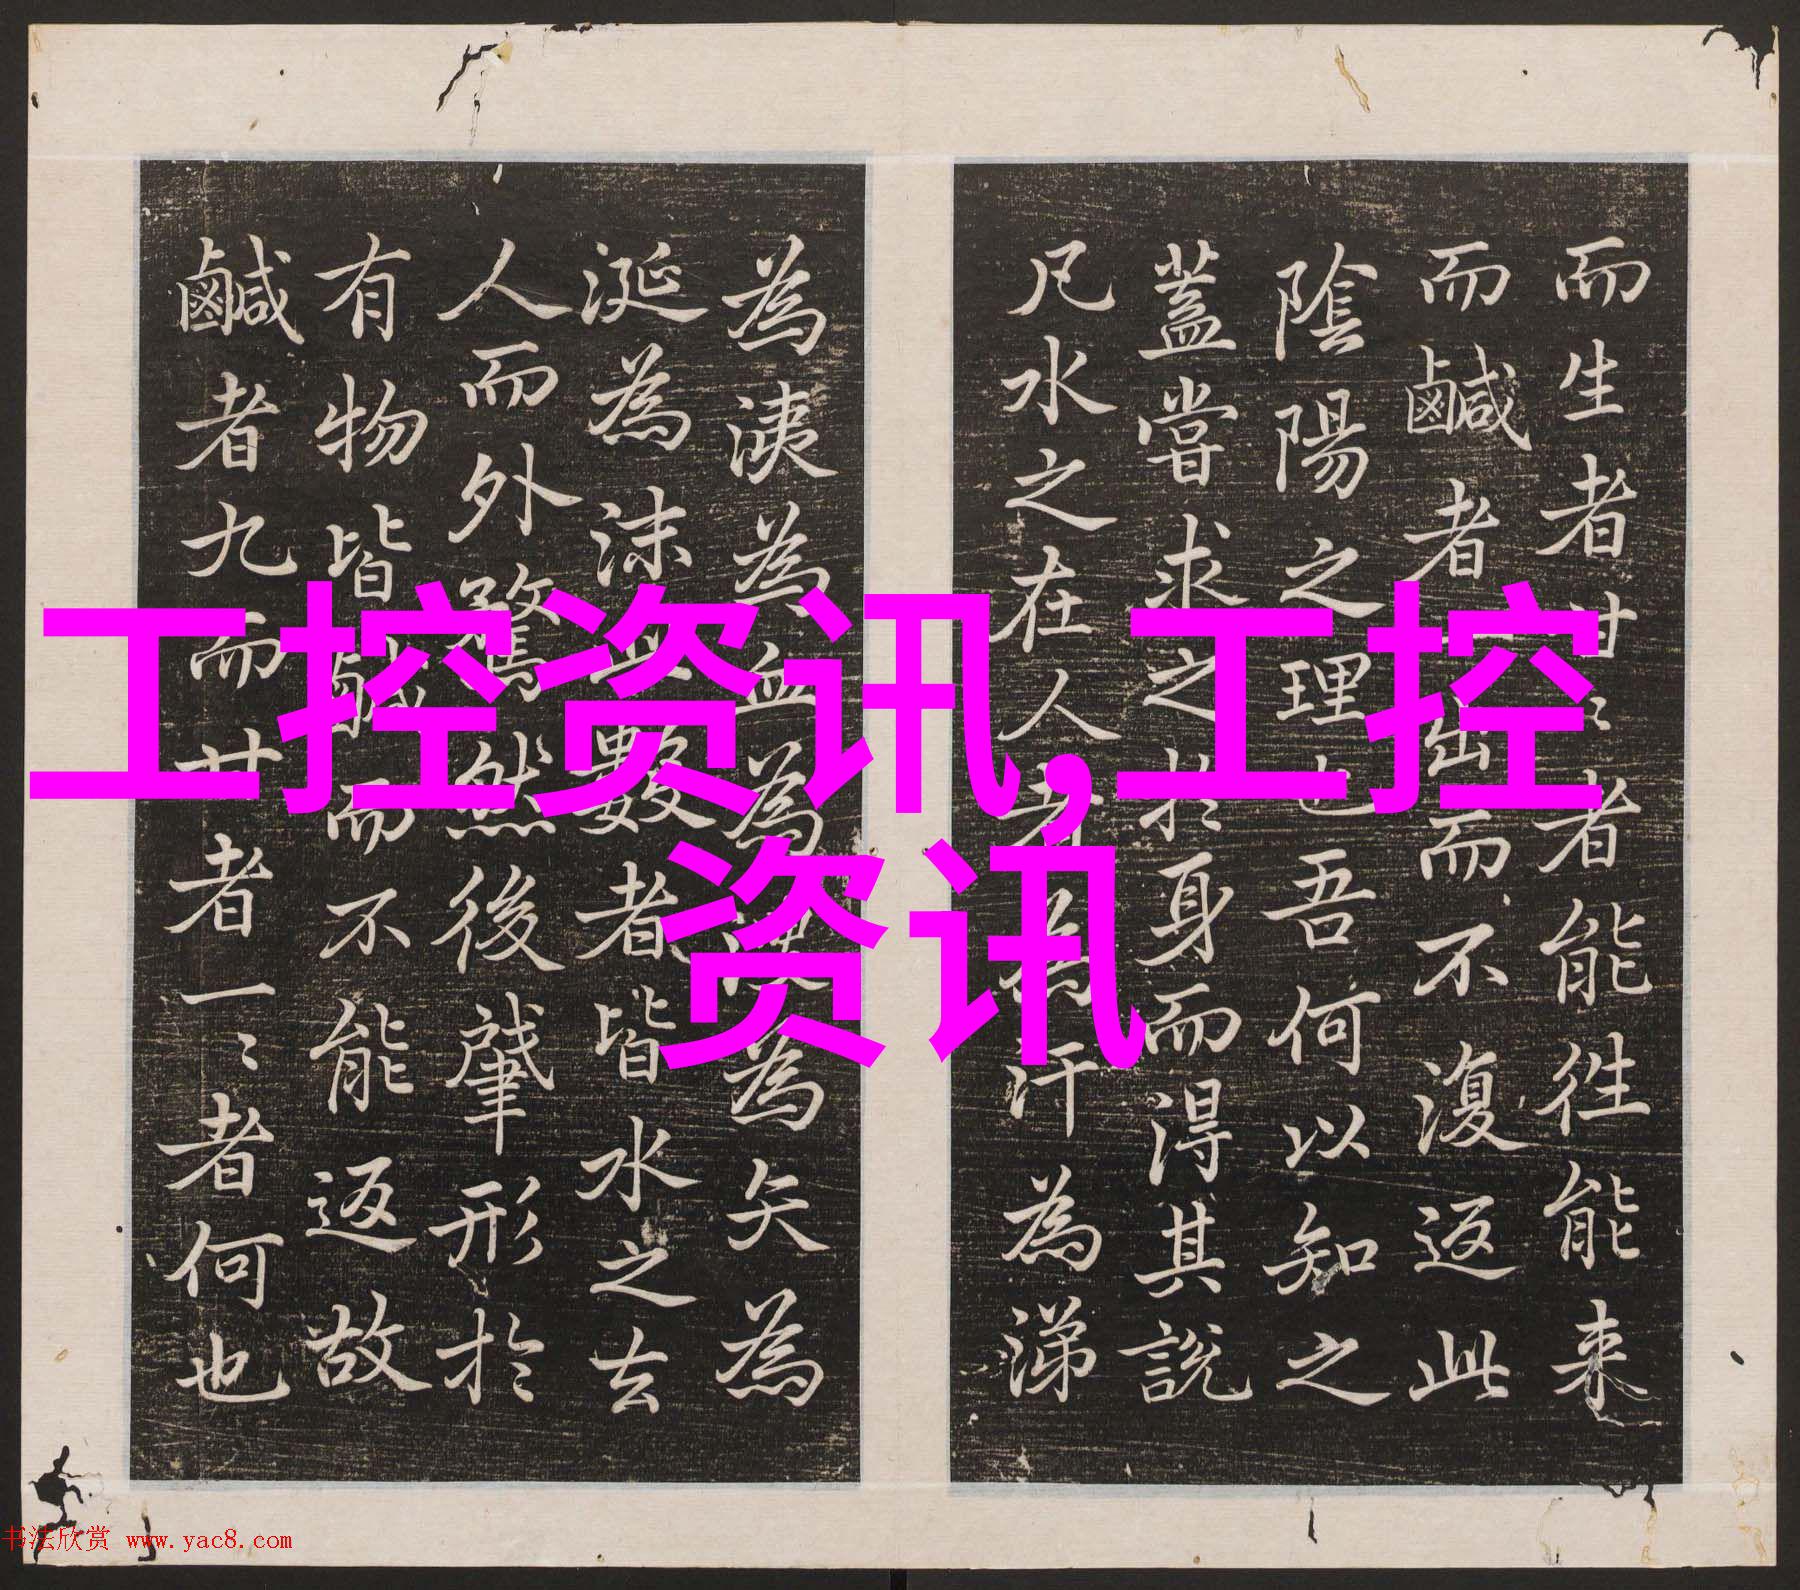 而生者甘〻者能徃能来
而鹹者一出而不澓返此
陰陽之理也吾何以知之
蓋嘗求之於身而得其說
凡水之在人者為汗為涕
為洟為血為溲為矢為
涎為沫此數者皆水之去
人而外騖然後肇形於
有物皆鹹而不能返故
鹹者九而甘者一〻者何也
工控资讯,工控
资讯
书法欣赏 www.yac8.com